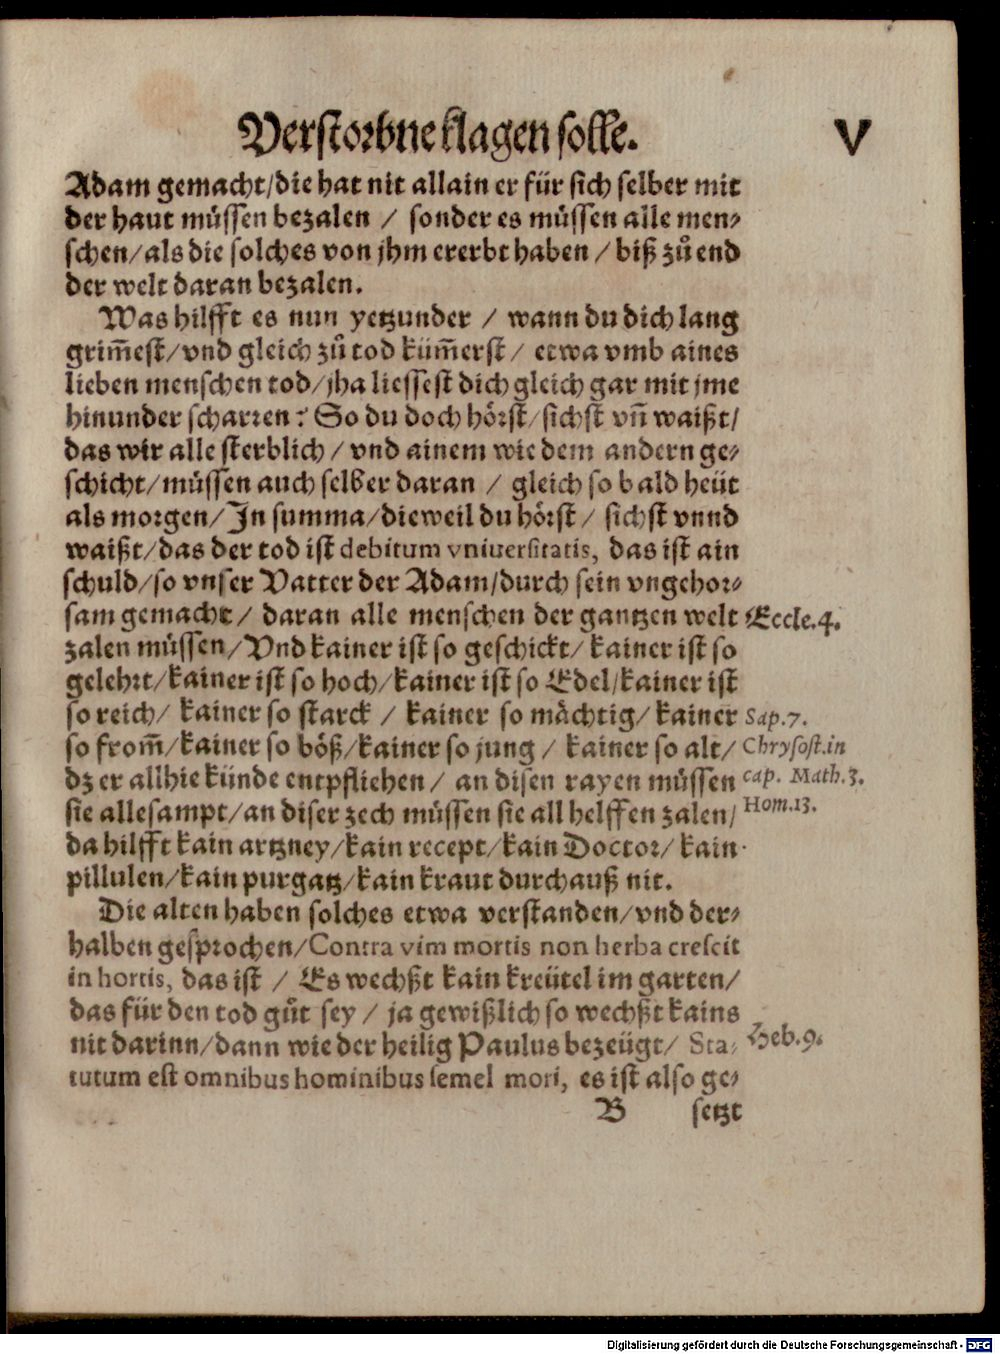 Verstorbne klagen solle. V
Adam gemacht/die hat nit allain er für sich selber mit
der haut müssen bezalen / sonder es müssen alle men⸗
schen/als die solches von jhm ererbt haben / biß zů end
der welt daran bezalen.
Was hilfft es nun yetzunder / wann du dich lang
grim̃est/vnd gleich zů tod küm̃erst / etwa vmb aines
lieben menschen tod/jha liessest dich gleich gar mit jme
hinunder scharren? So du doch hörst/sichst vn̄ waißt/
das wir alle sterblich / vnd ainem wie dem andern ge⸗
schicht/müssen auch selber daran / gleich so bald heüt
als morgen/In summa/dieweil du hörst / sichst vnnd
waißt/das der tod ist debitum vniuersitatis, das ist ain
schuld/so vnser Vatter der Adam/durch sein vngehor⸗
sam gemacht / daran alle menschen der gantzen welt Eccle.4.
zalen müssen/Vnd kainer ist so geschickt/ kainer ist so
gelehrt/kainer ist so hoch/kainer ist so Edel/kainer ist
so reich/ kainer so starck / kainer so mächtig/ kainer Sap.7.
so from̃/kainer so böß/kainer so jung / kainer so alt/ Chrysost.in
dz er allhie künde entpfliehen / an disen rayen müssen cap. Math.3.
sie allesampt/an diser zech müssen sie all helffen zalen/ Hom.13.
da hilfft kain artzney/kain recept/kain Doctor/ kain
pillulen/kain purgatz/kain kraut durchauß nit.
Die alten haben solches etwa verstanden/vnd der⸗
halben gesprochen/Contra vim mortis non herba crescit
in hortis, das ist / Es wechßt kain kreütel im garten/
das für den tod gůt sey / ja gewißlich so wechßt kains
nit darinn/dann wie der heilig Paulus bezeügt/ Sta⸗ Heb.9.
tutum est omnibus hominibus semel mori, es ist also ge⸗
B setzt
Digitalisierung gefördert durch die Deutsche Forschungsgemeinschaft - DFG